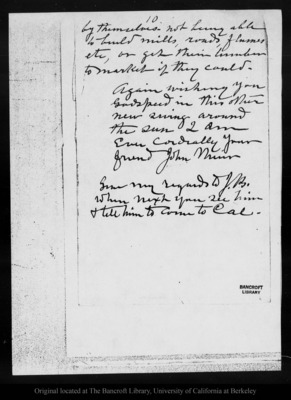 10
by themselves. not being able
to build mills, roads, flumes
etc, or get their lumber
to market if they could.
Again wishing you
Godspeed in this other
new swing around
the sun I am
Ever cordially your
friend John Muir
Give my regards to J.B.
when next you see him
& tell him to come to Cal.
BANCROFT
LIBRARY
Original located at The Bancroft Library, University of California at Berkeley